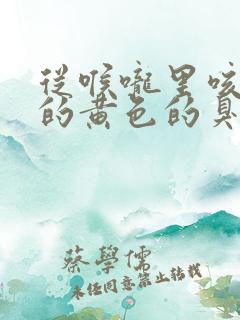 從喉嚨里咳
的黃色的臭
蔡學儒
未經同意禁止轉載